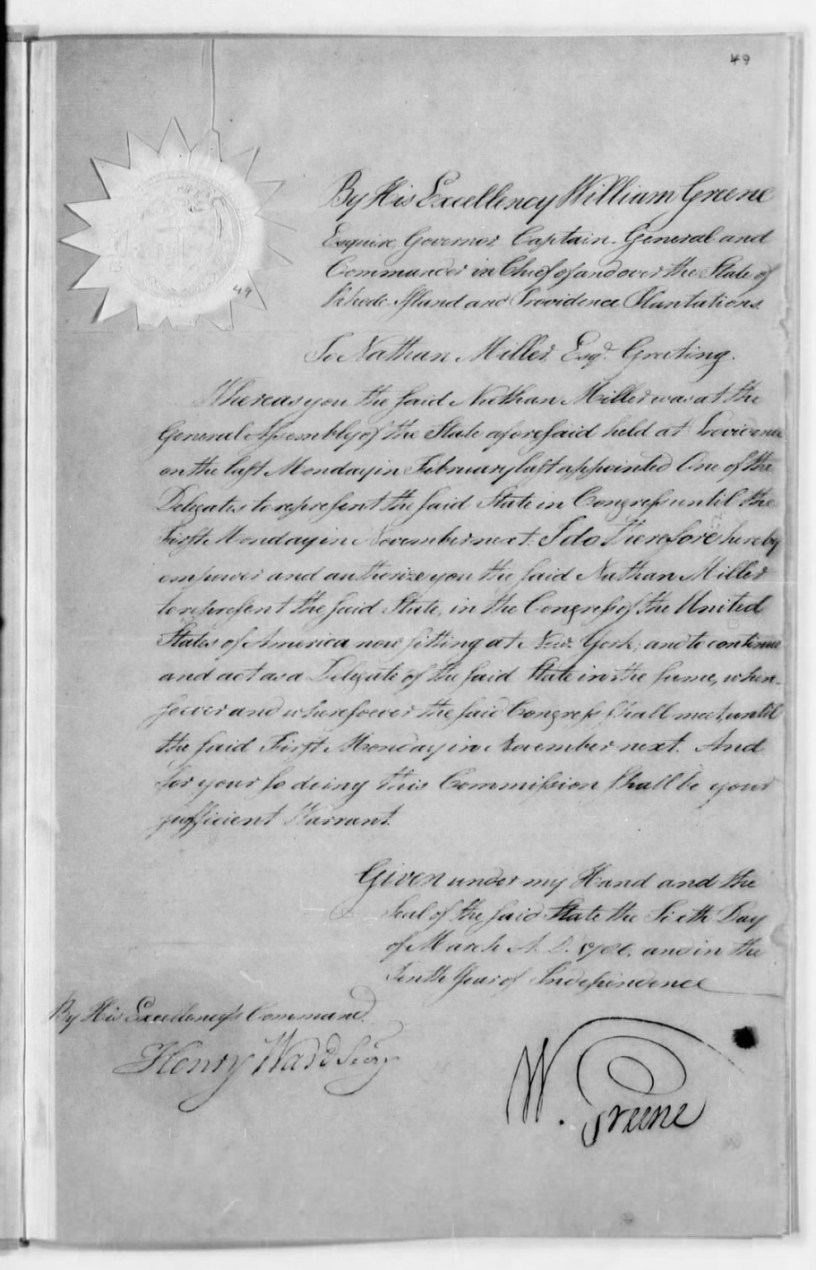 49
By His Excellency William Greene
Esquire, Governor Captain-General and
Commander in Chief of and over the State of
Rhode-Island and Providence Plantations.
49
To Nathan Miller Esqr. Greeting.
Whereas you the said Nathan Miller was at the
General Assembly of the State aforesaid held at Providence
on the last Monday in February last appointed One of the
Delegates to represent the said State in Congress until the
First Monday in November next: I do Therefore hereby
empower and authorize you the said Nathan Miller
to represent the said State, in the Congress of the United
States of America now sitting at New-York; and to continue
and act as a Delegate of the said State in the same, when-
soever and wheresoever the said Congress shall meet, until
the said First Monday in November next. And
for your so doing this Commission shall be your
sufficient Warrant.
Given under my Hand and the
Seal of the said State the Sixth Day
of March A. D. 1786, and in the
Tenth Year of Independence
By His Excellency's Command.
Henry Ward Secry
W. Greene